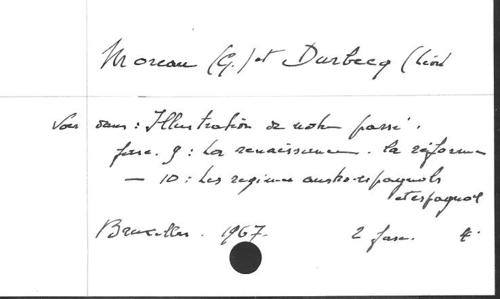 Moreau (G.) et Durbecq (Léon
Voir dans : Illustration de notre passé.
fasc. 9 : La renaissance. La réforme
— 10 : Les régimes austro-espagnols
et espagnol
Bruxelles. 1967. 2 fasc. 4°